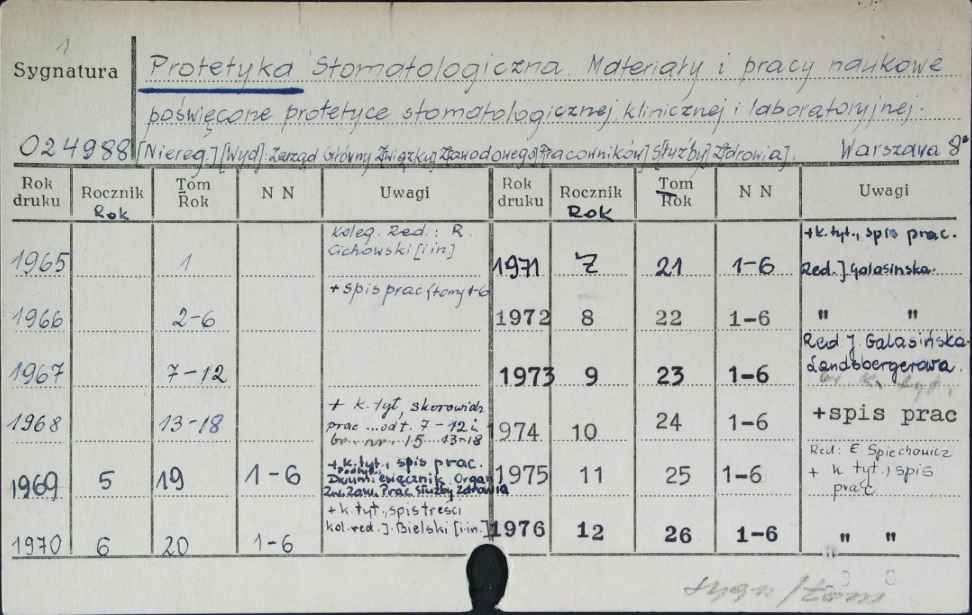 1
Sygnatura
Protetyka Stomatologiczna. Materiały i pracy naukowe
poświęcone protetyce stomatologicznej klinicznej i laboratoryjnej.
024988 [Niereg.] [Wyd]. Zarząd Główny Związku Zawodowego Pracowników Służby Zdrowia]. Warszawa 8°
Rok druku Rocznik Rok Tom Rok N N Uwagi Rok druku Rocznik Rok Tom Rok N N Uwagi
1965 1 Koleg. Red.: R. Cichowski [i in] 1971 7 21 1-6 + k. tyt., spis prac. Red. J. Galasińska.
1966 2-6 + spis prac (tomy 1-6 1972 8 22 1-6 " "
1967 7-12 1973 9 23 1-6 Red J. Galasińska-Landsbergerowa.
1968 13-18 + k. tyt, skorowidz prac ... od t. 7-12 i br. nr. 15 13-18 1974 10 24 1-6 +spis prac
1969 5 19 1-6 + k. tyt., spis prac. Dwumiesięcznik Organ Zw. Zaw. Prac. Służby Zdrowia 1975 11 25 1-6 Red: E Spiechowicz + k tyt., spis prac
1970 6 20 1-6 + k. tyt., spis treści kol. red. J. Bielski [i in.] 1976 12 26 1-6 " "